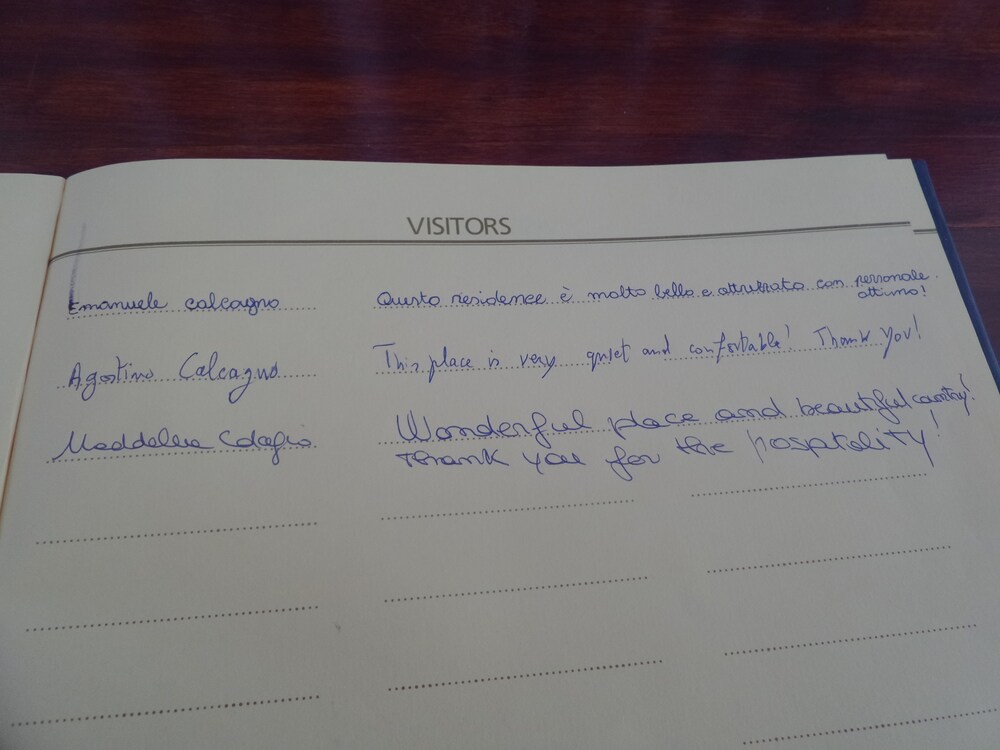 VISITORS
Emanuele Calcagno Questo residence è molto bello e attrezzato con personale
ottimo!
Agostino Calcagno This place is very quiet and confortable! Thank you!
Maddalena Wonderful place and beautiful country!
Thank you for the hospitality!